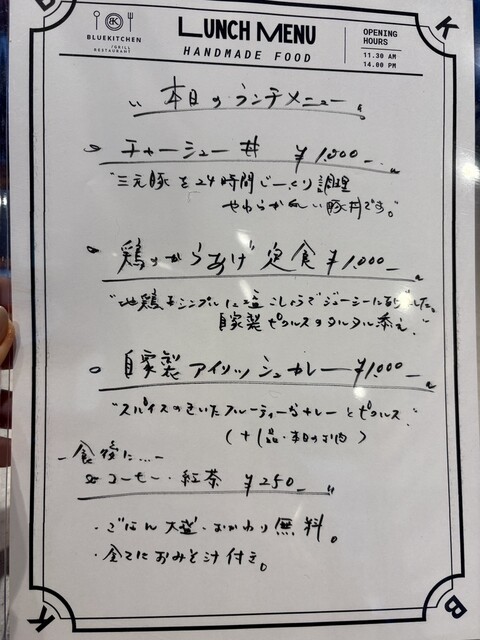 BLUEKITCHEN
/GRILL
RESTAURANT
LUNCH MENU
HANDMADE FOOD
OPENING
HOURS
11.30 AM
14.00 PM
本日のランチメニュー
チャーシュー丼 ¥1,000-
"三元豚を24時間じっくり調理
やわらかい豚丼です。"
鶏のからあげ定食 ¥1,000-
"地鶏をシンプルに塩こしょうでジューシーに
自家製ピクルスのタルタル添え."
自家製アイリッシュカレー ¥1,000-
"スパイスのきいたフルーティーなカレーとピクルス."
(+1品・本日の)
-食後に...-
コーヒー・紅茶 ¥250-
・ごはん大盛・おかわり無料。
・全てにおみそ汁付き。
K
K
B